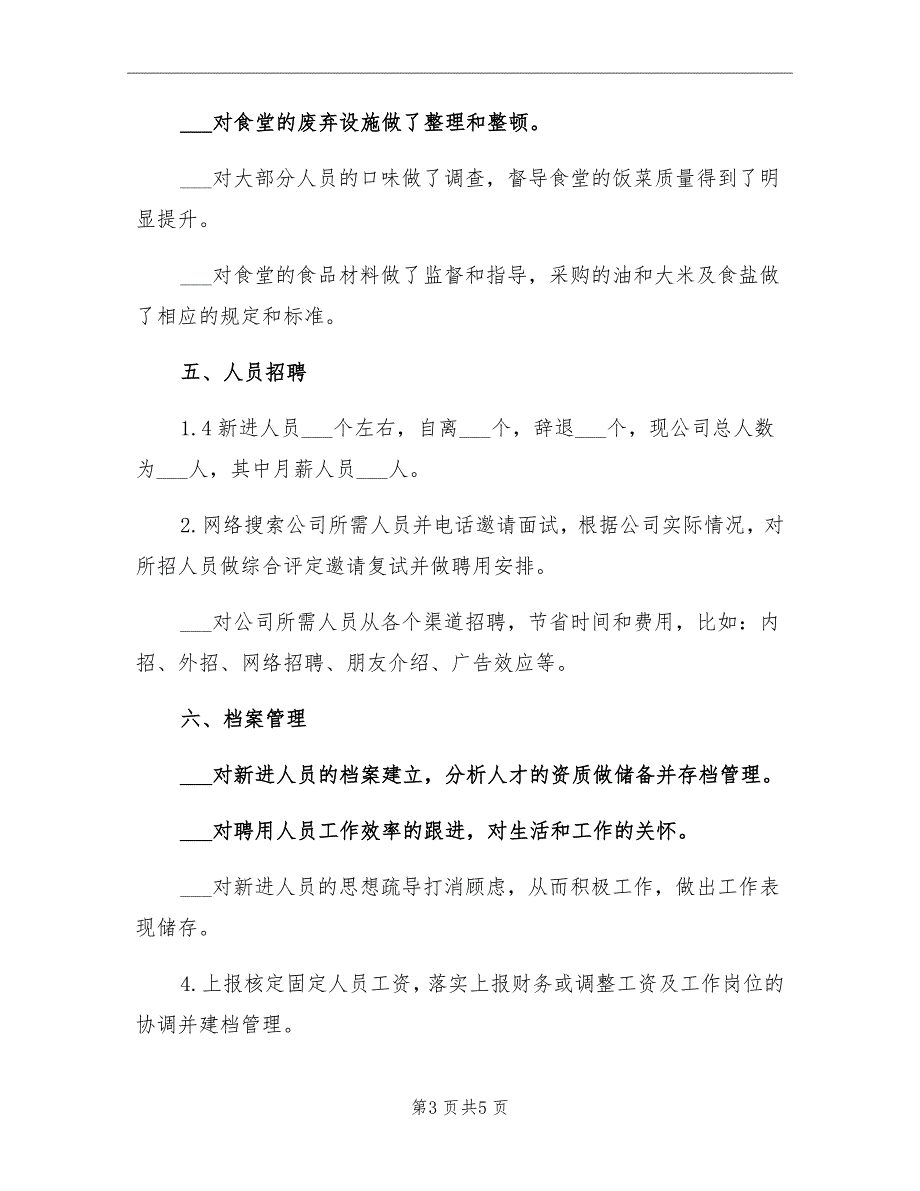 ___对食堂的废弃设施做了整理和整顿。
___对大部分人员的口味做了调查，督导食堂的饭菜质量得到了明
显提升。
___对食堂的食品材料做了监督和指导，采购的油和大米及食盐做
了相应的规定和标准。
五、人员招聘
1.4 新进人员___个左右，自离___个，辞退___个，现公司总人数
为___人，其中月薪人员___人。
2.网络搜索公司所需人员并电话邀请面试，根据公司实际情况，对
所招人员做综合评定邀请复试并做聘用安排。
___对公司所需人员从各个渠道招聘，节省时间和费用，比如：内
招、外招、网络招聘、朋友介绍、广告效应等。
六、档案管理
___对新进人员的档案建立，分析人才的资质做储备并存档管理。
___对聘用人员工作效率的跟进，对生活和工作的关怀。
___对新进人员的思想疏导打消顾虑，从而积极工作，做出工作表
现储存。
4.上报核定固定人员工资，落实上报财务或调整工资及工作岗位的
协调并建档管理。
第3 页共5 页